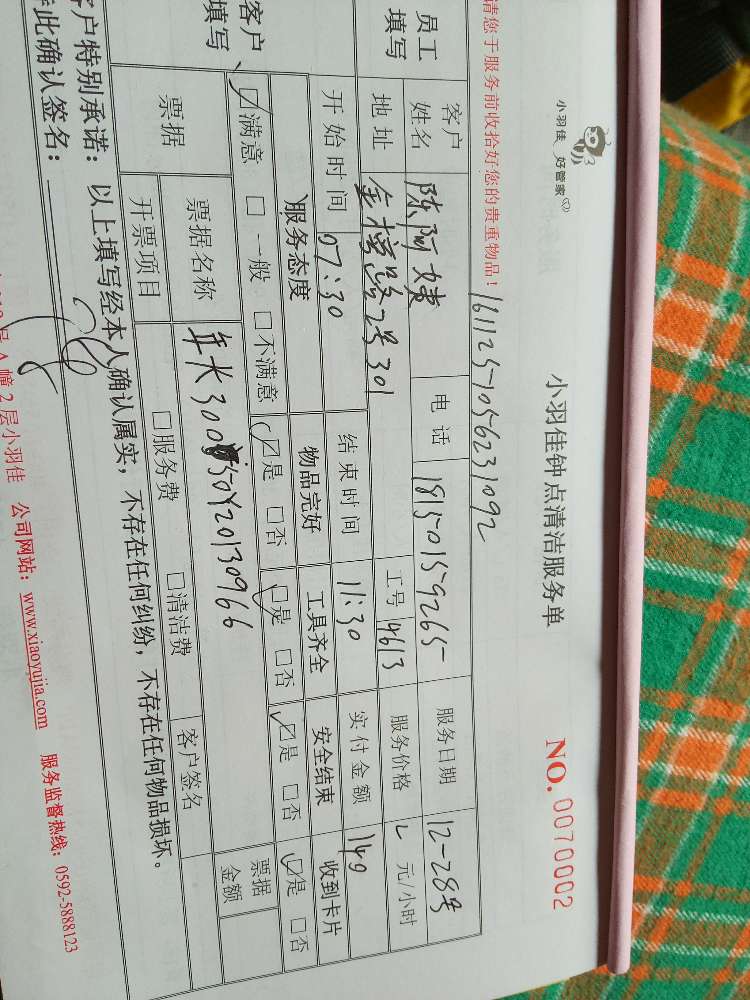 小羽佳 好管家
小羽佳钟点清洁服务单
NO. 0070002
请您于服务前收拾好您的贵重物品！
1611257056231092
员工填写
客户姓名 陈阿姨 电话 18150159265 服务日期 12-28号
地址 金榜路2号301 工号 4613 服务价格 元/小时
开始时间 07:30 结束时间 11:30 实付金额 149
客户填写
服务态度 物品完好 工具齐全 安全结束 收到卡片
☑满意 □一般 □不满意 ☑是 □否 ☑是 □否 ☑是 □否 ☑是 □否
票据 票据名称 年卡300 票据金额
开票项目 □服务费 □清洁费 客户签名
客户特别承诺：以上填写经本人确认属实，不存在任何纠纷，不存在任何物品损坏。
此确认签名：
幢2层小羽佳 公司网站：www.xiaoyujia.com 服务监督热线：0592-5888123